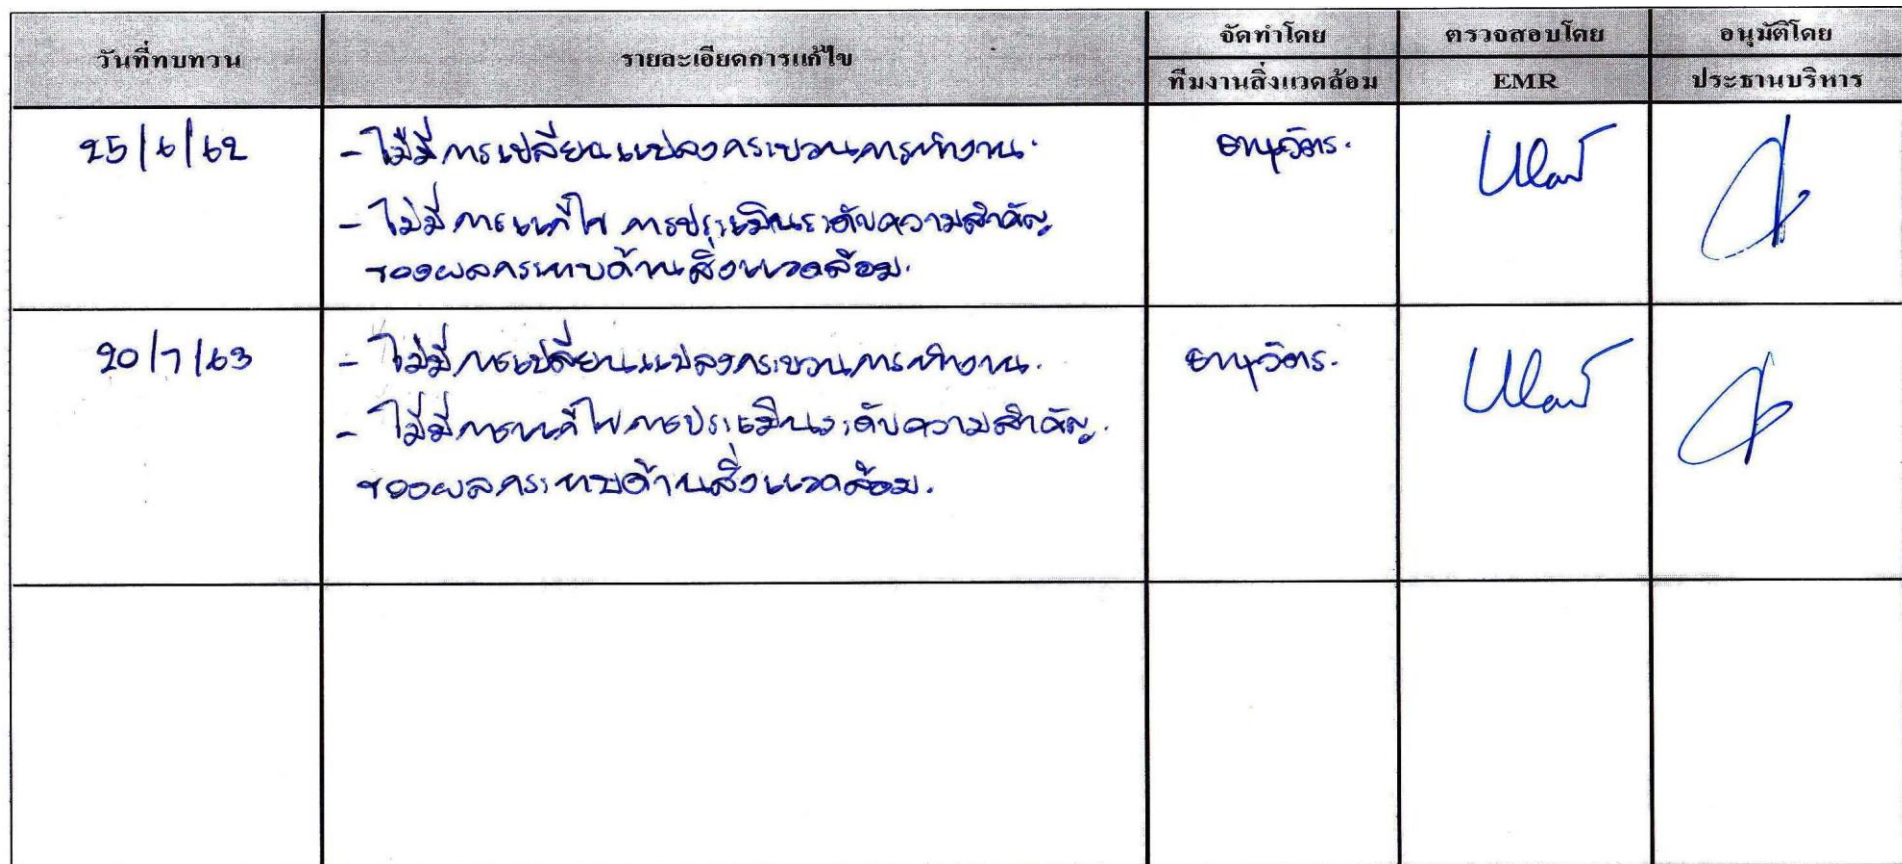 วันที่ทบทวน
รายละเอียดการแก้ไข
จัดทำโดย
ตรวจสอบโดย
อนุมัติโดย
ทีมงานสิ่งแวดล้อม
EMR
ประธานบริหาร
25/6/62
- ไม่มีการเปลี่ยนแปลงกระบวนการทำงาน.
- ไม่มีการแก้ไข การประเมินระดับความสำคัญ
ของผลกระทบด้านสิ่งแวดล้อม.
20/7/63
- ไม่มีการเปลี่ยนแปลงกระบวนการทำงาน.
- ไม่มีการแก้ไขการประเมินระดับความสำคัญ.
ของผลกระทบด้านสิ่งแวดล้อม.